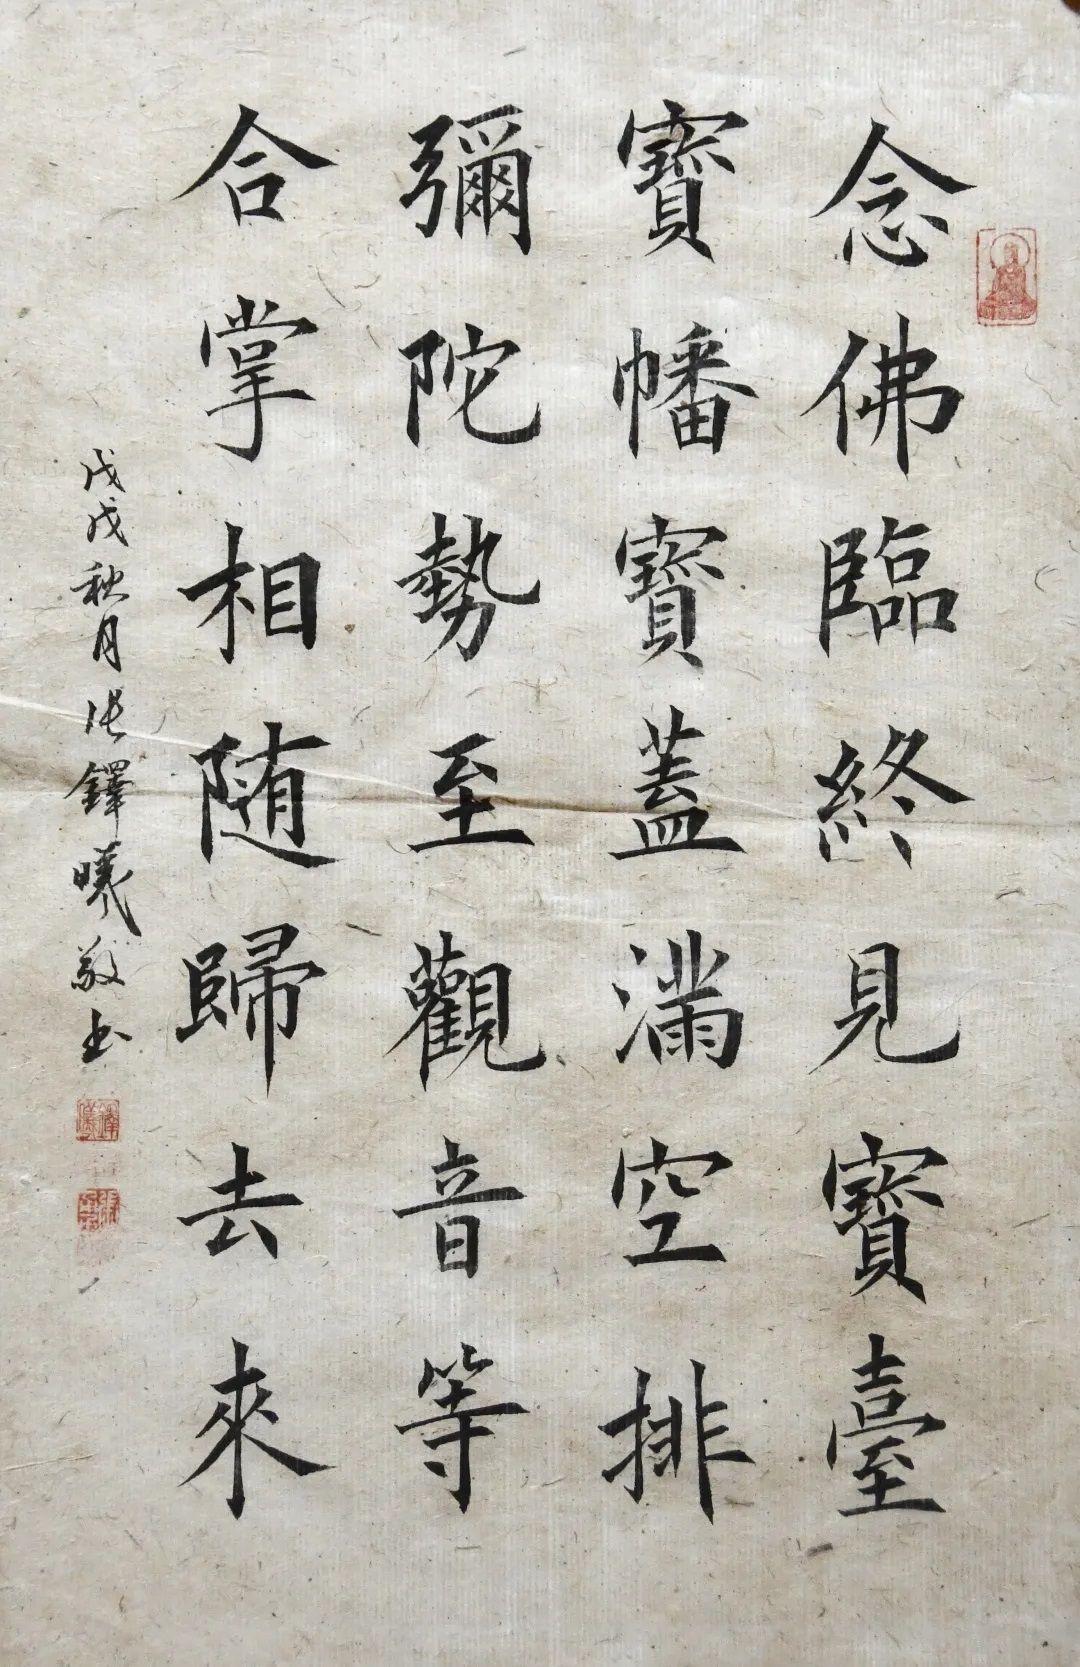 念佛臨終見寶臺
寶幡寶蓋滿空排
彌陀勢至觀音等
合掌相随歸去來
戊戌秋月張鐸曦敬书